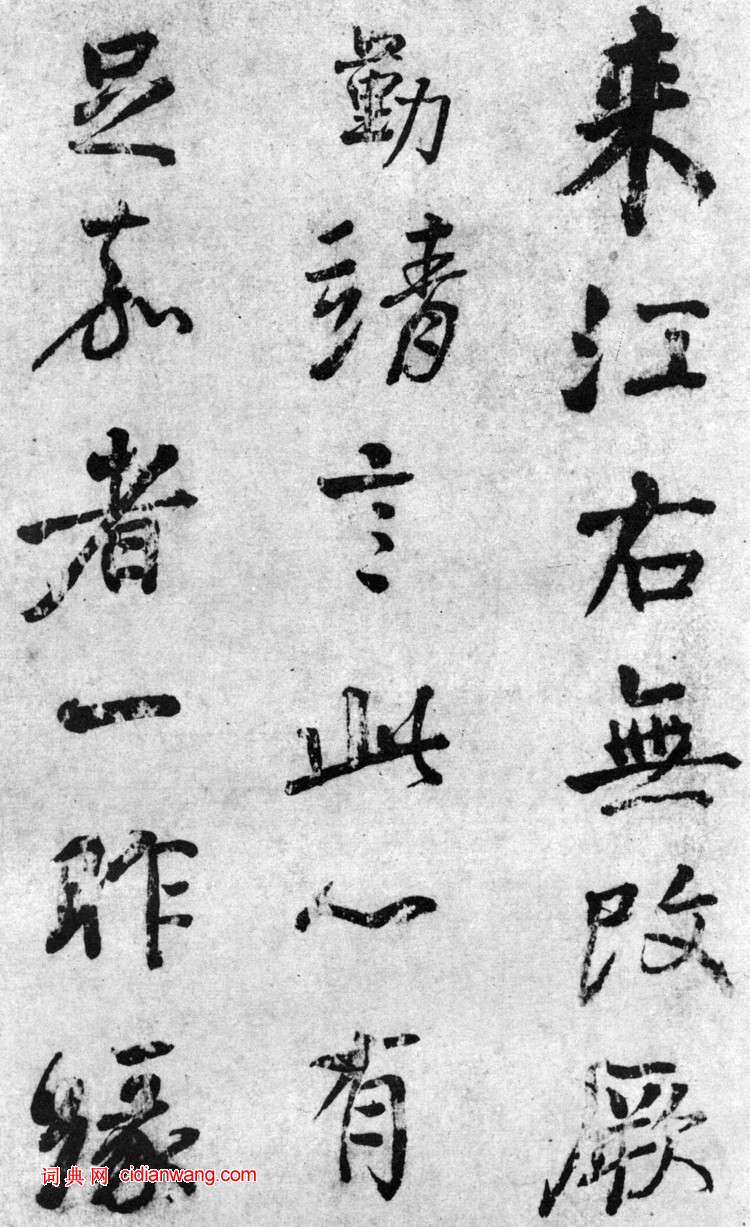 来江右無改厥
勤靖言此心有
足嘉者一昨緣
词典网 cidianwang.com